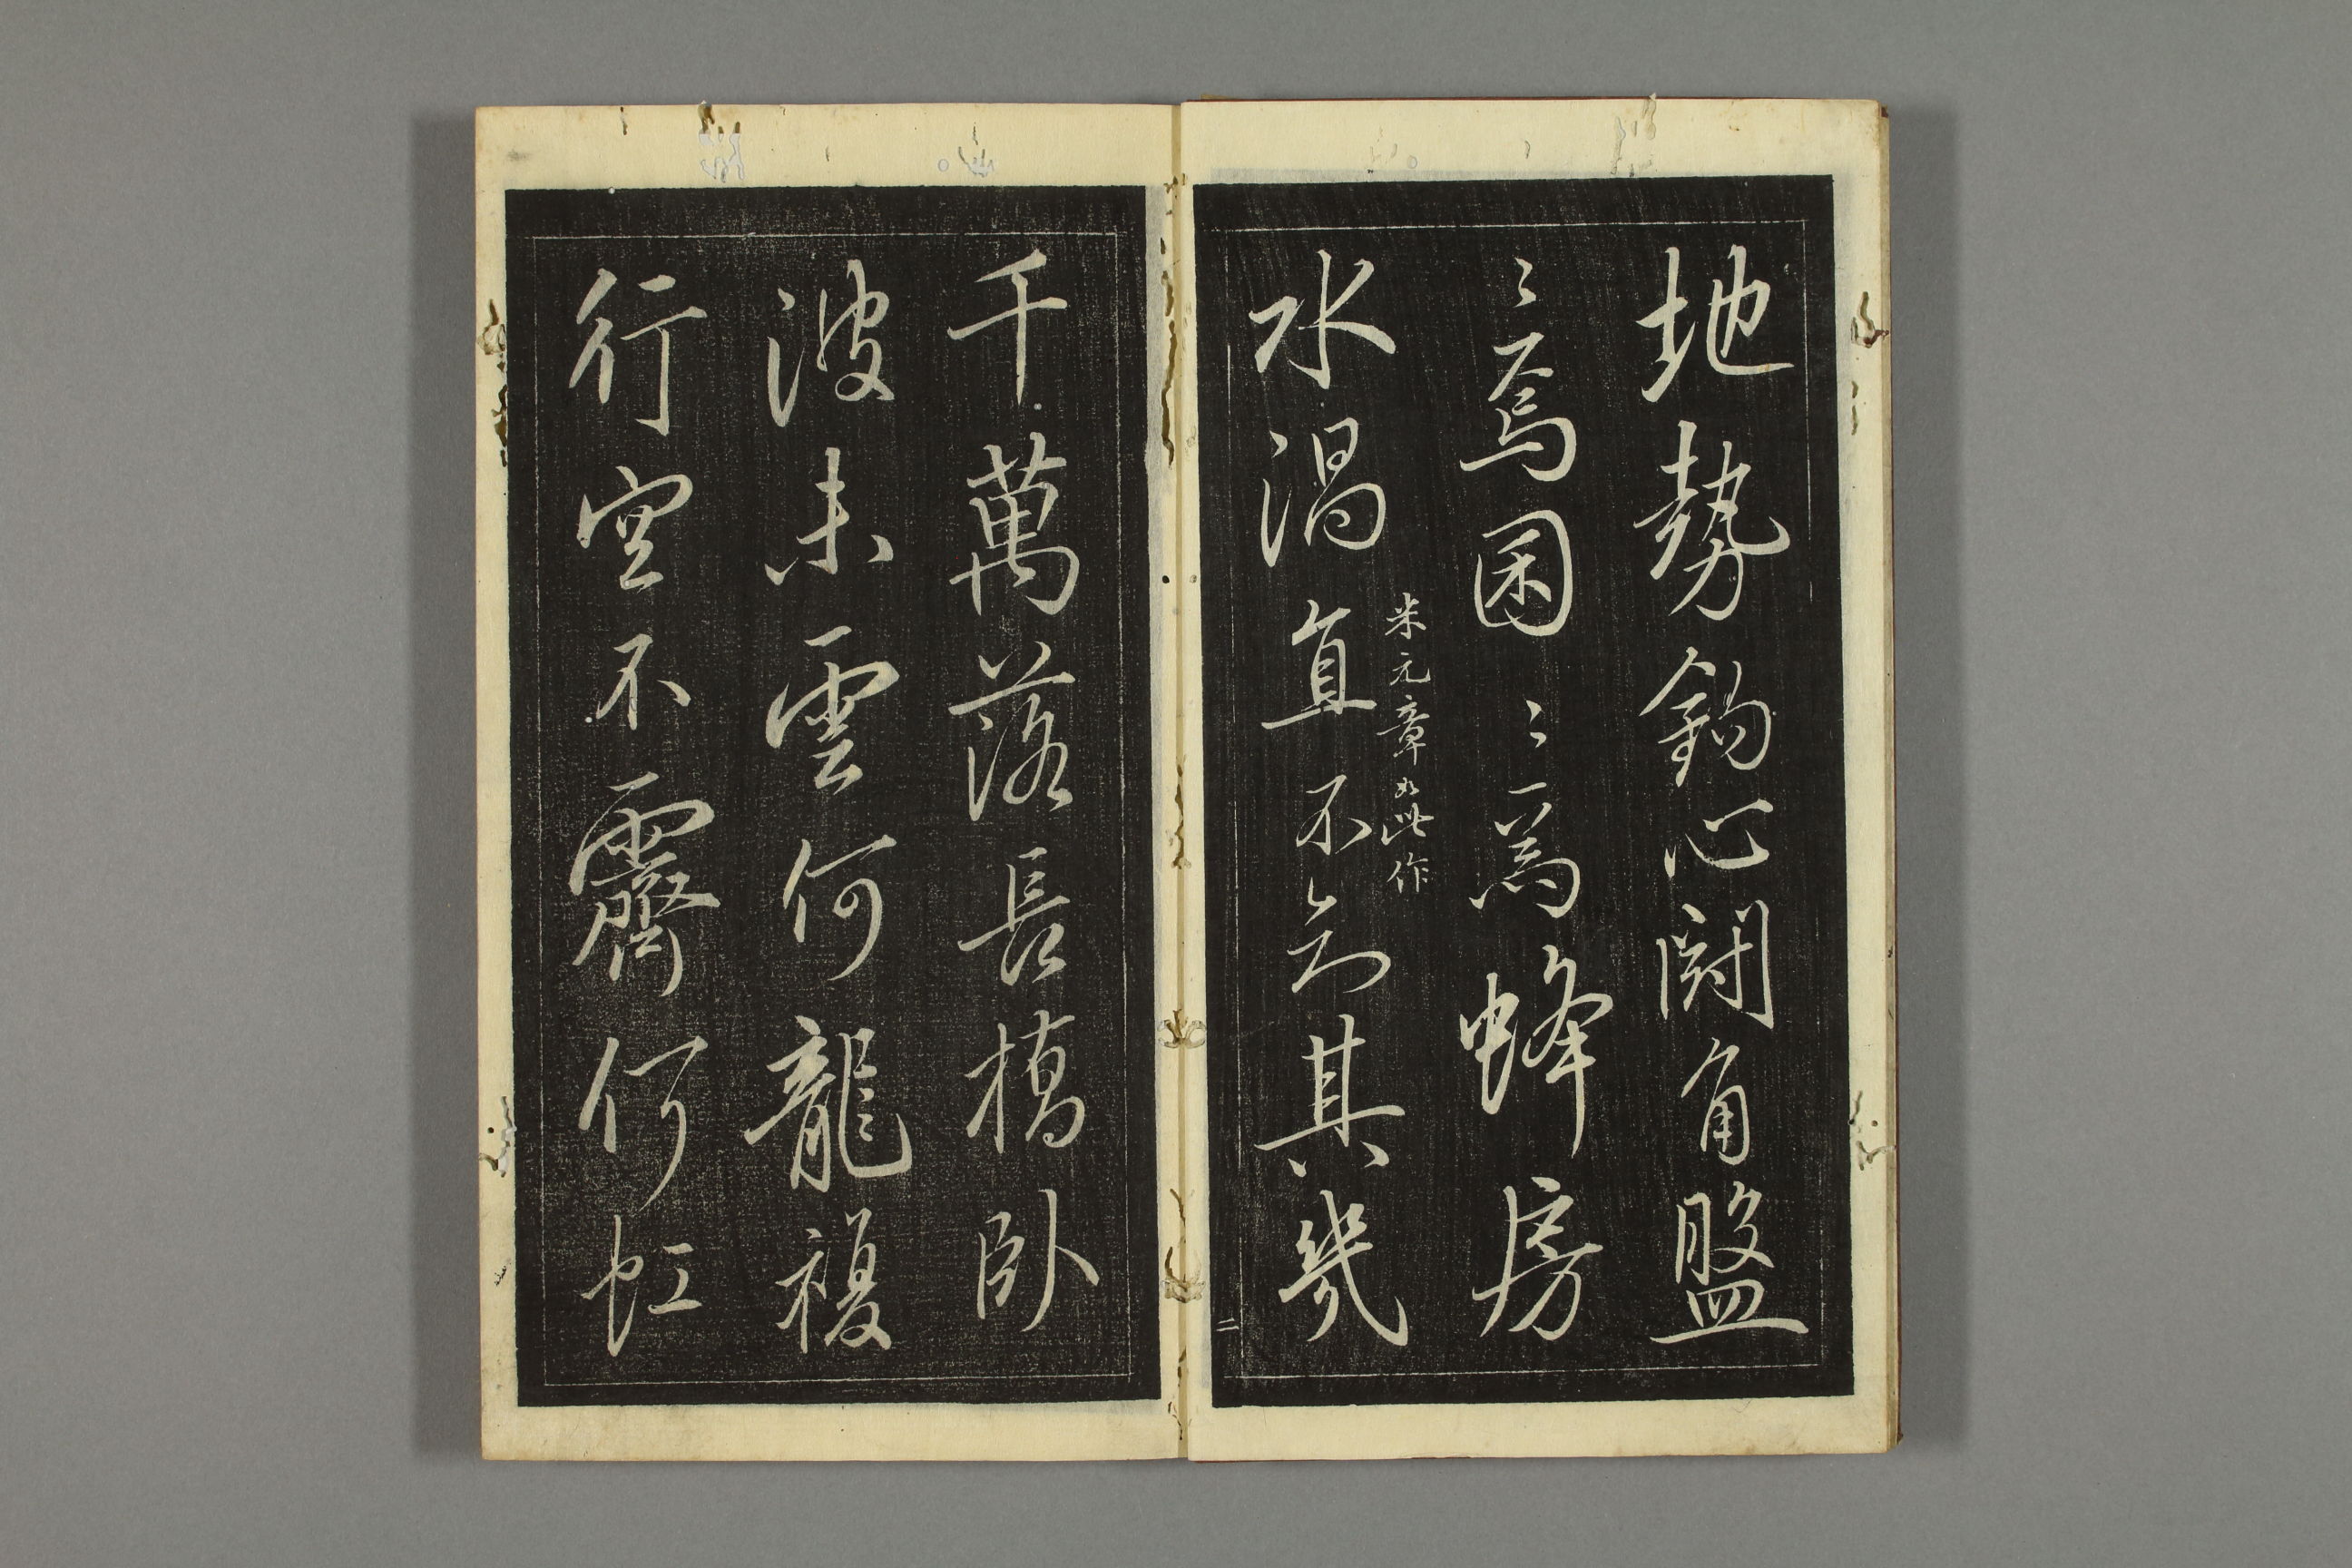 地勢鈎心闘角盤
〻焉囷〻焉蜂房
米元章如此作
水渦直不知其幾
二
千萬落長橋臥
波未雲何龍複
行空不霽何虹